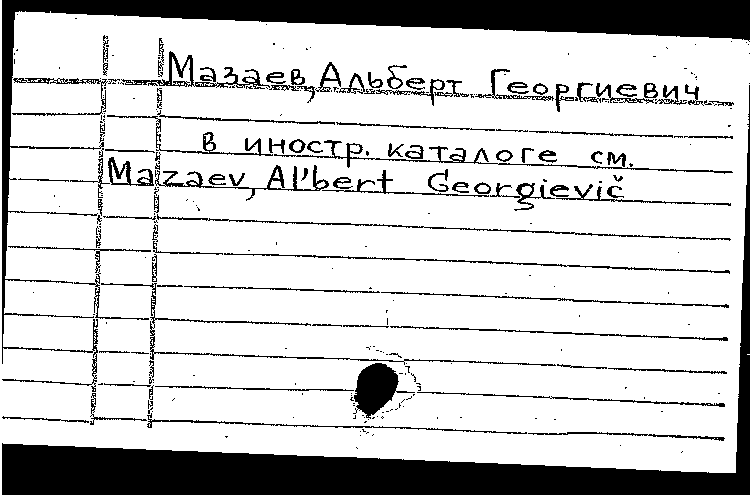 Мазаев, Альберт Георгиевич
в иностр. каталоге см.
Mazaev, Al'bert Georgievič